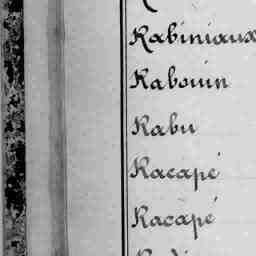 Rabiniaux
Rabouin
Rabu
Racapé
Racapé